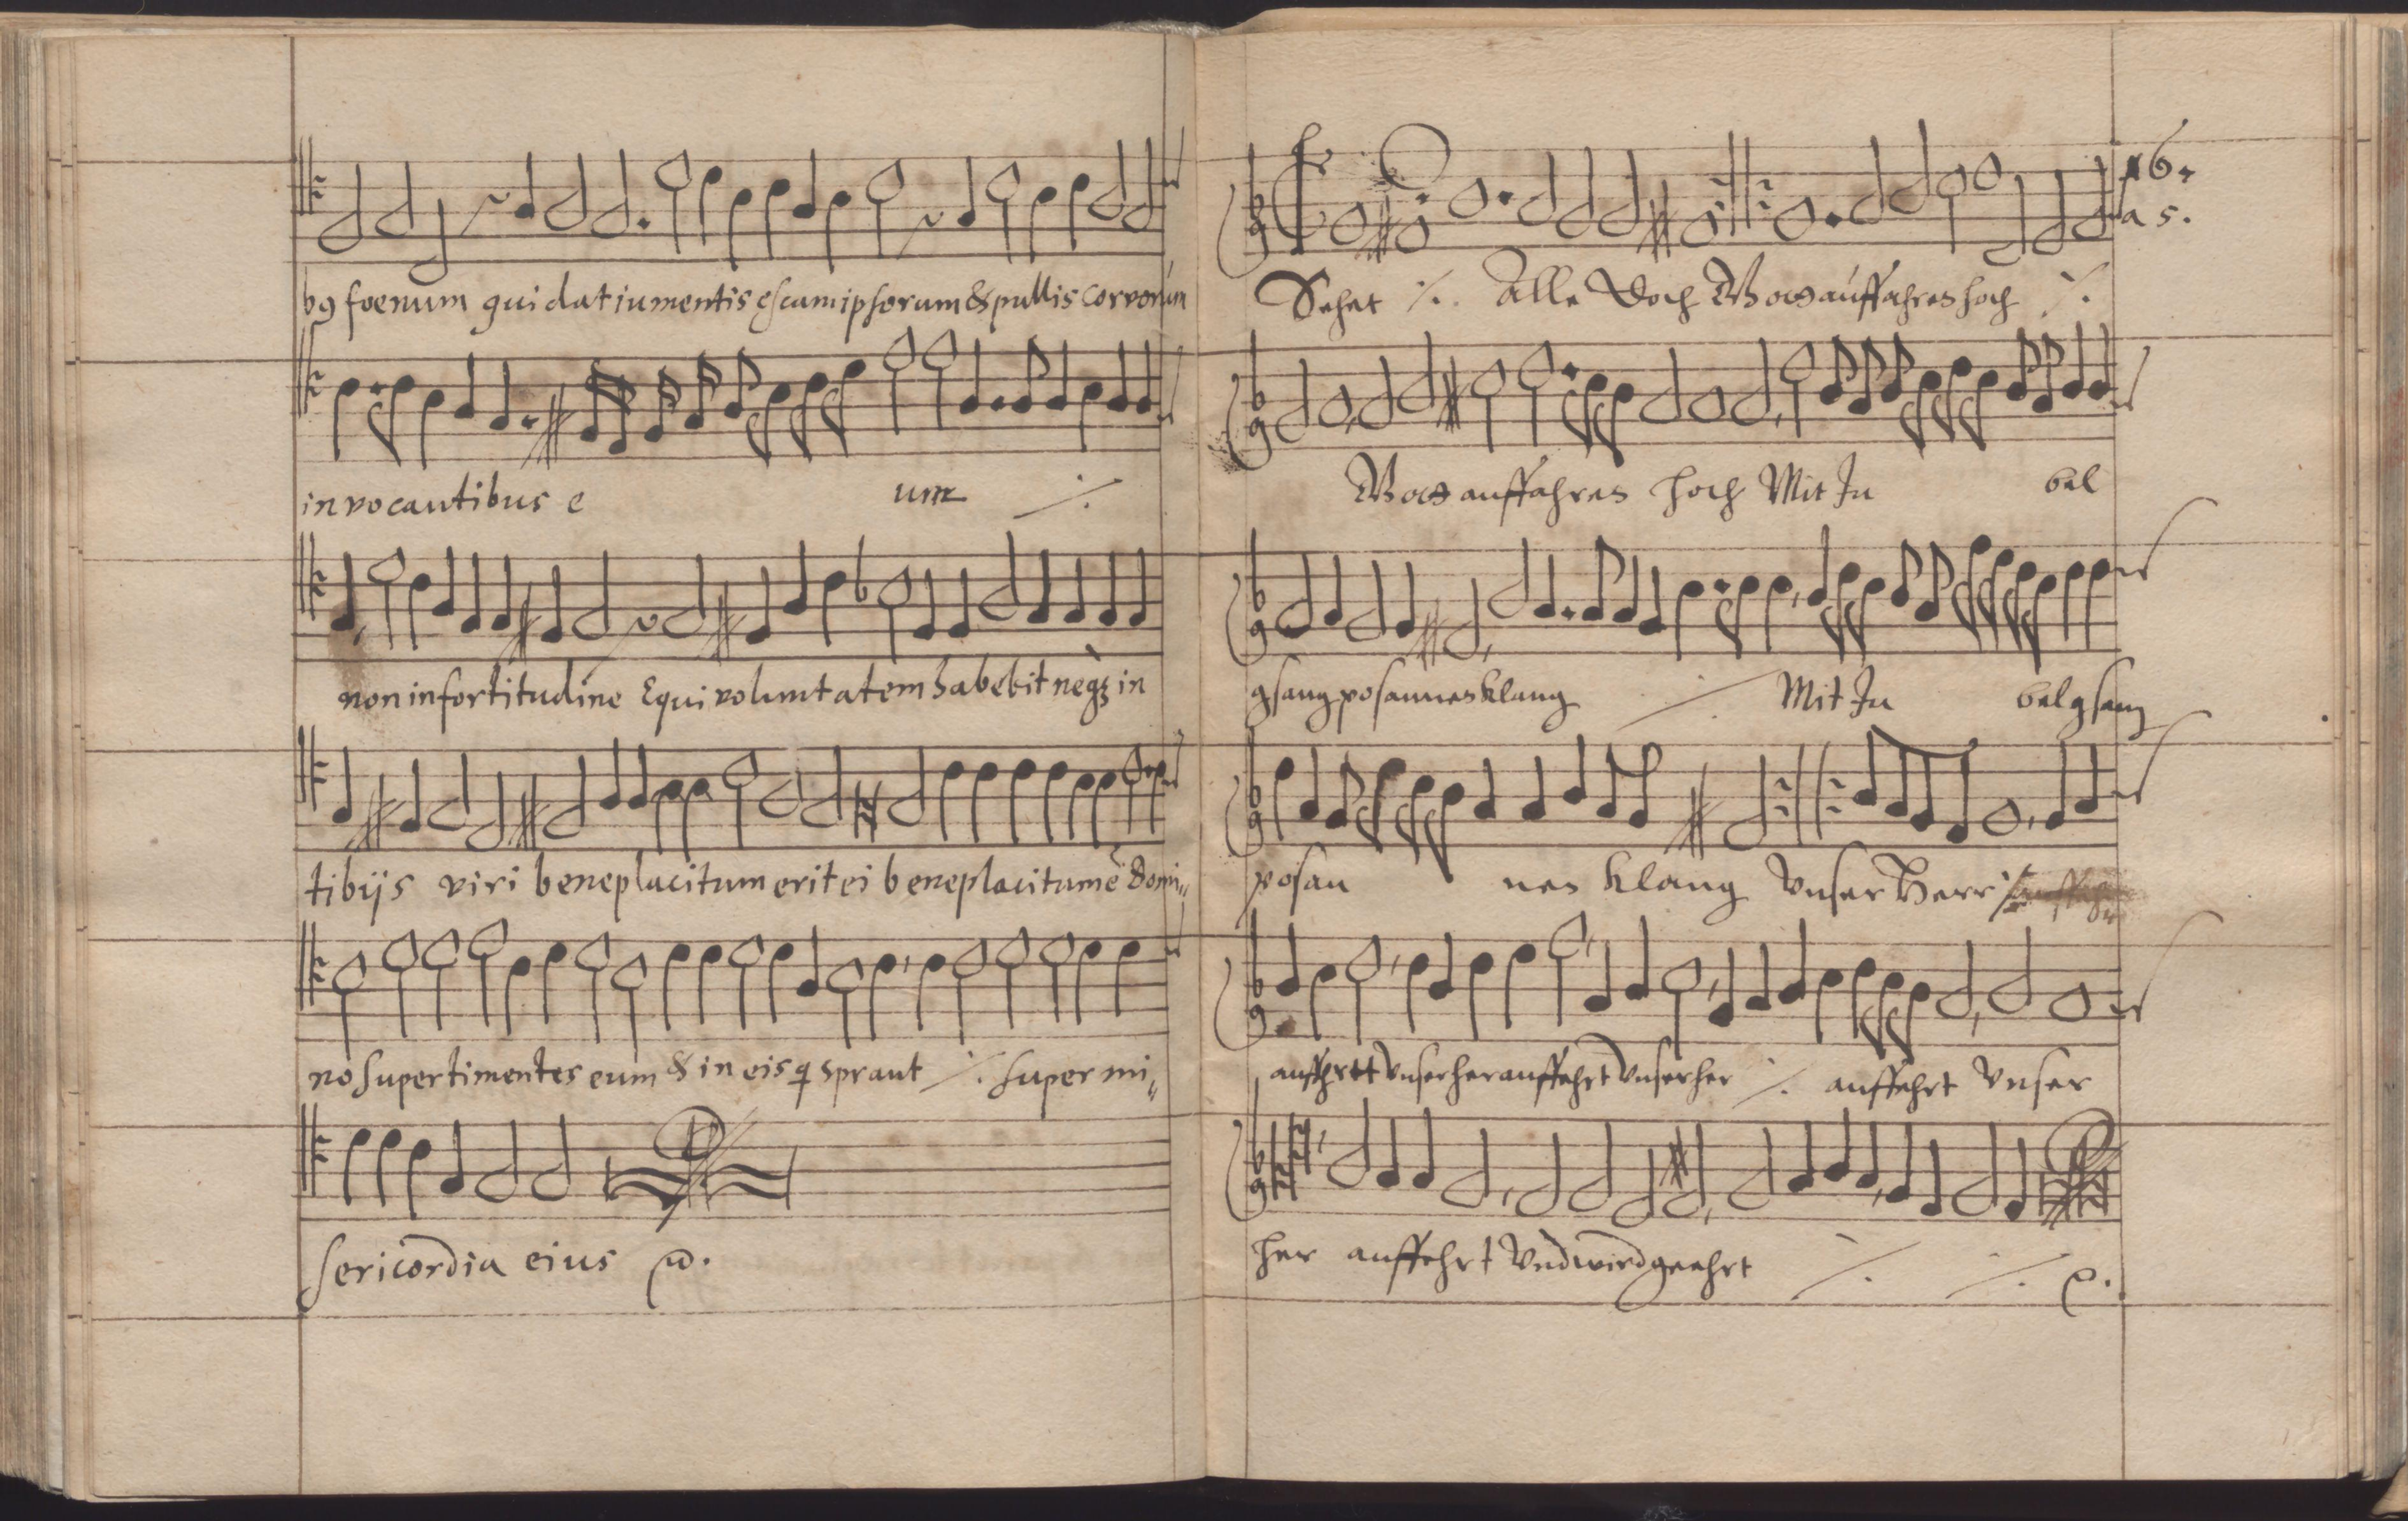 b9 foenum qui dat iumentis escam ipsorum & pullis corvorum
invocantibus e um ⁒
non in fortitudine Equi voluntatem habebit neqȝ in
tibijs viri beneplacitum erit ei beneplacitum ē Domi„
no super timentes eum & in eis q sprant ⁒ super mi„
sericordia eius
16.
a 5.
Sehet ⁒ Alle doch Wo auffahres hoch ⁒
auffahres hoch Mit Ju bel
gsang posaunesklang ⁒ Mit Ju belgsang
posau nes klang Unser Herr ⁒
auffehrtt Unser her auffehrt Unser her ⁒ auffehrt Unser
her auffehrt Und wird geehrt ⁒ ⁒